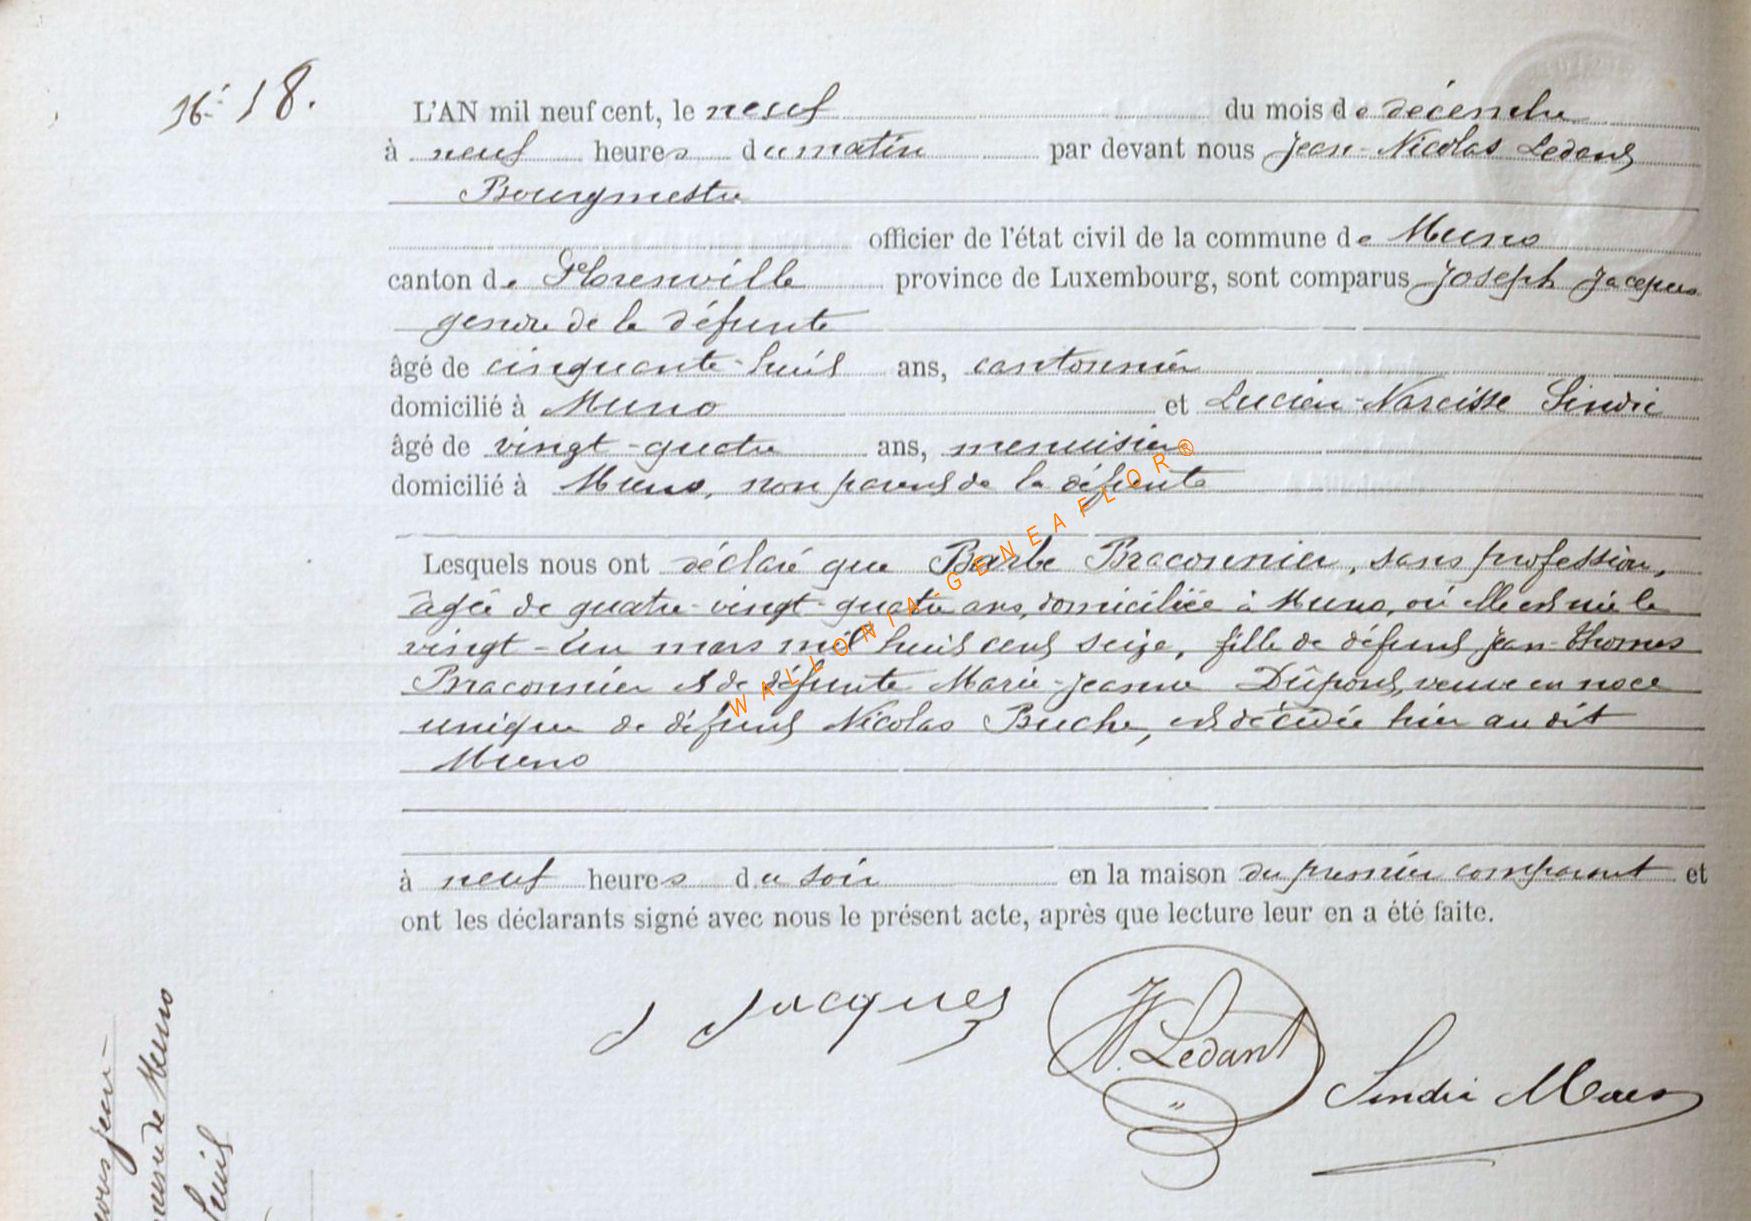 N° 18.
L'AN mil neuf cent, le neuf du mois de décembre
à neuf heures du matin par devant nous Jean-Nicolas Ledant
Bourgmestre
officier de l'état civil de la commune de Muno
canton de Florenville province de Luxembourg, sont comparus Joseph Jacques
gendre de la défunte
âgé de cinquante-huit ans, cantonnier
domicilié à Muno et Lucien-Narcisse Sindic
âgé de vingt-quatre ans, menuisier
domicilié à Muno, non parent de la défunte
Lesquels nous ont déclaré que Barbe Braconnier, sans profession,
âgée de quatre-vingt-quatre ans, domiciliée à Muno, où elle est née le
vingt-un mars mil huit cent seize, fille de défunt Jean-Thomas
Braconnier et de défunte Marie-Jeanne Dûpont, veuve en noce
unique de défunt Nicolas Buche, est décédée hier au dit
Muno
à neuf heures du soir en la maison du premier comparant et
ont les déclarants signé avec nous le présent acte, après que lecture leur en a été faite.
J Jacques
JN. Ledant
Sindic
WALLONIA-GENEAFLOR®
de Muno
huit